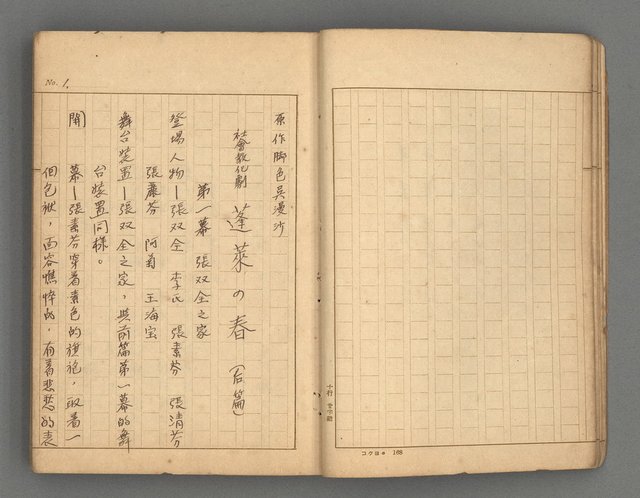 No. 1.
原作脚色吳漫沙
社會教化劇 蓬萊の春 (后篇)
第一幕 張双全之家
登場人物—張双全 李氏 張素芬 張清芬
張麗芬 阿菊 王海宝
舞台裝置—張双全之家，與前篇第一幕的舞
台裝置同樣。
開 幕—張素芬穿着素色的旗袍，
面容憔悴的，有着悲愁的表
十行
コクヨ 168